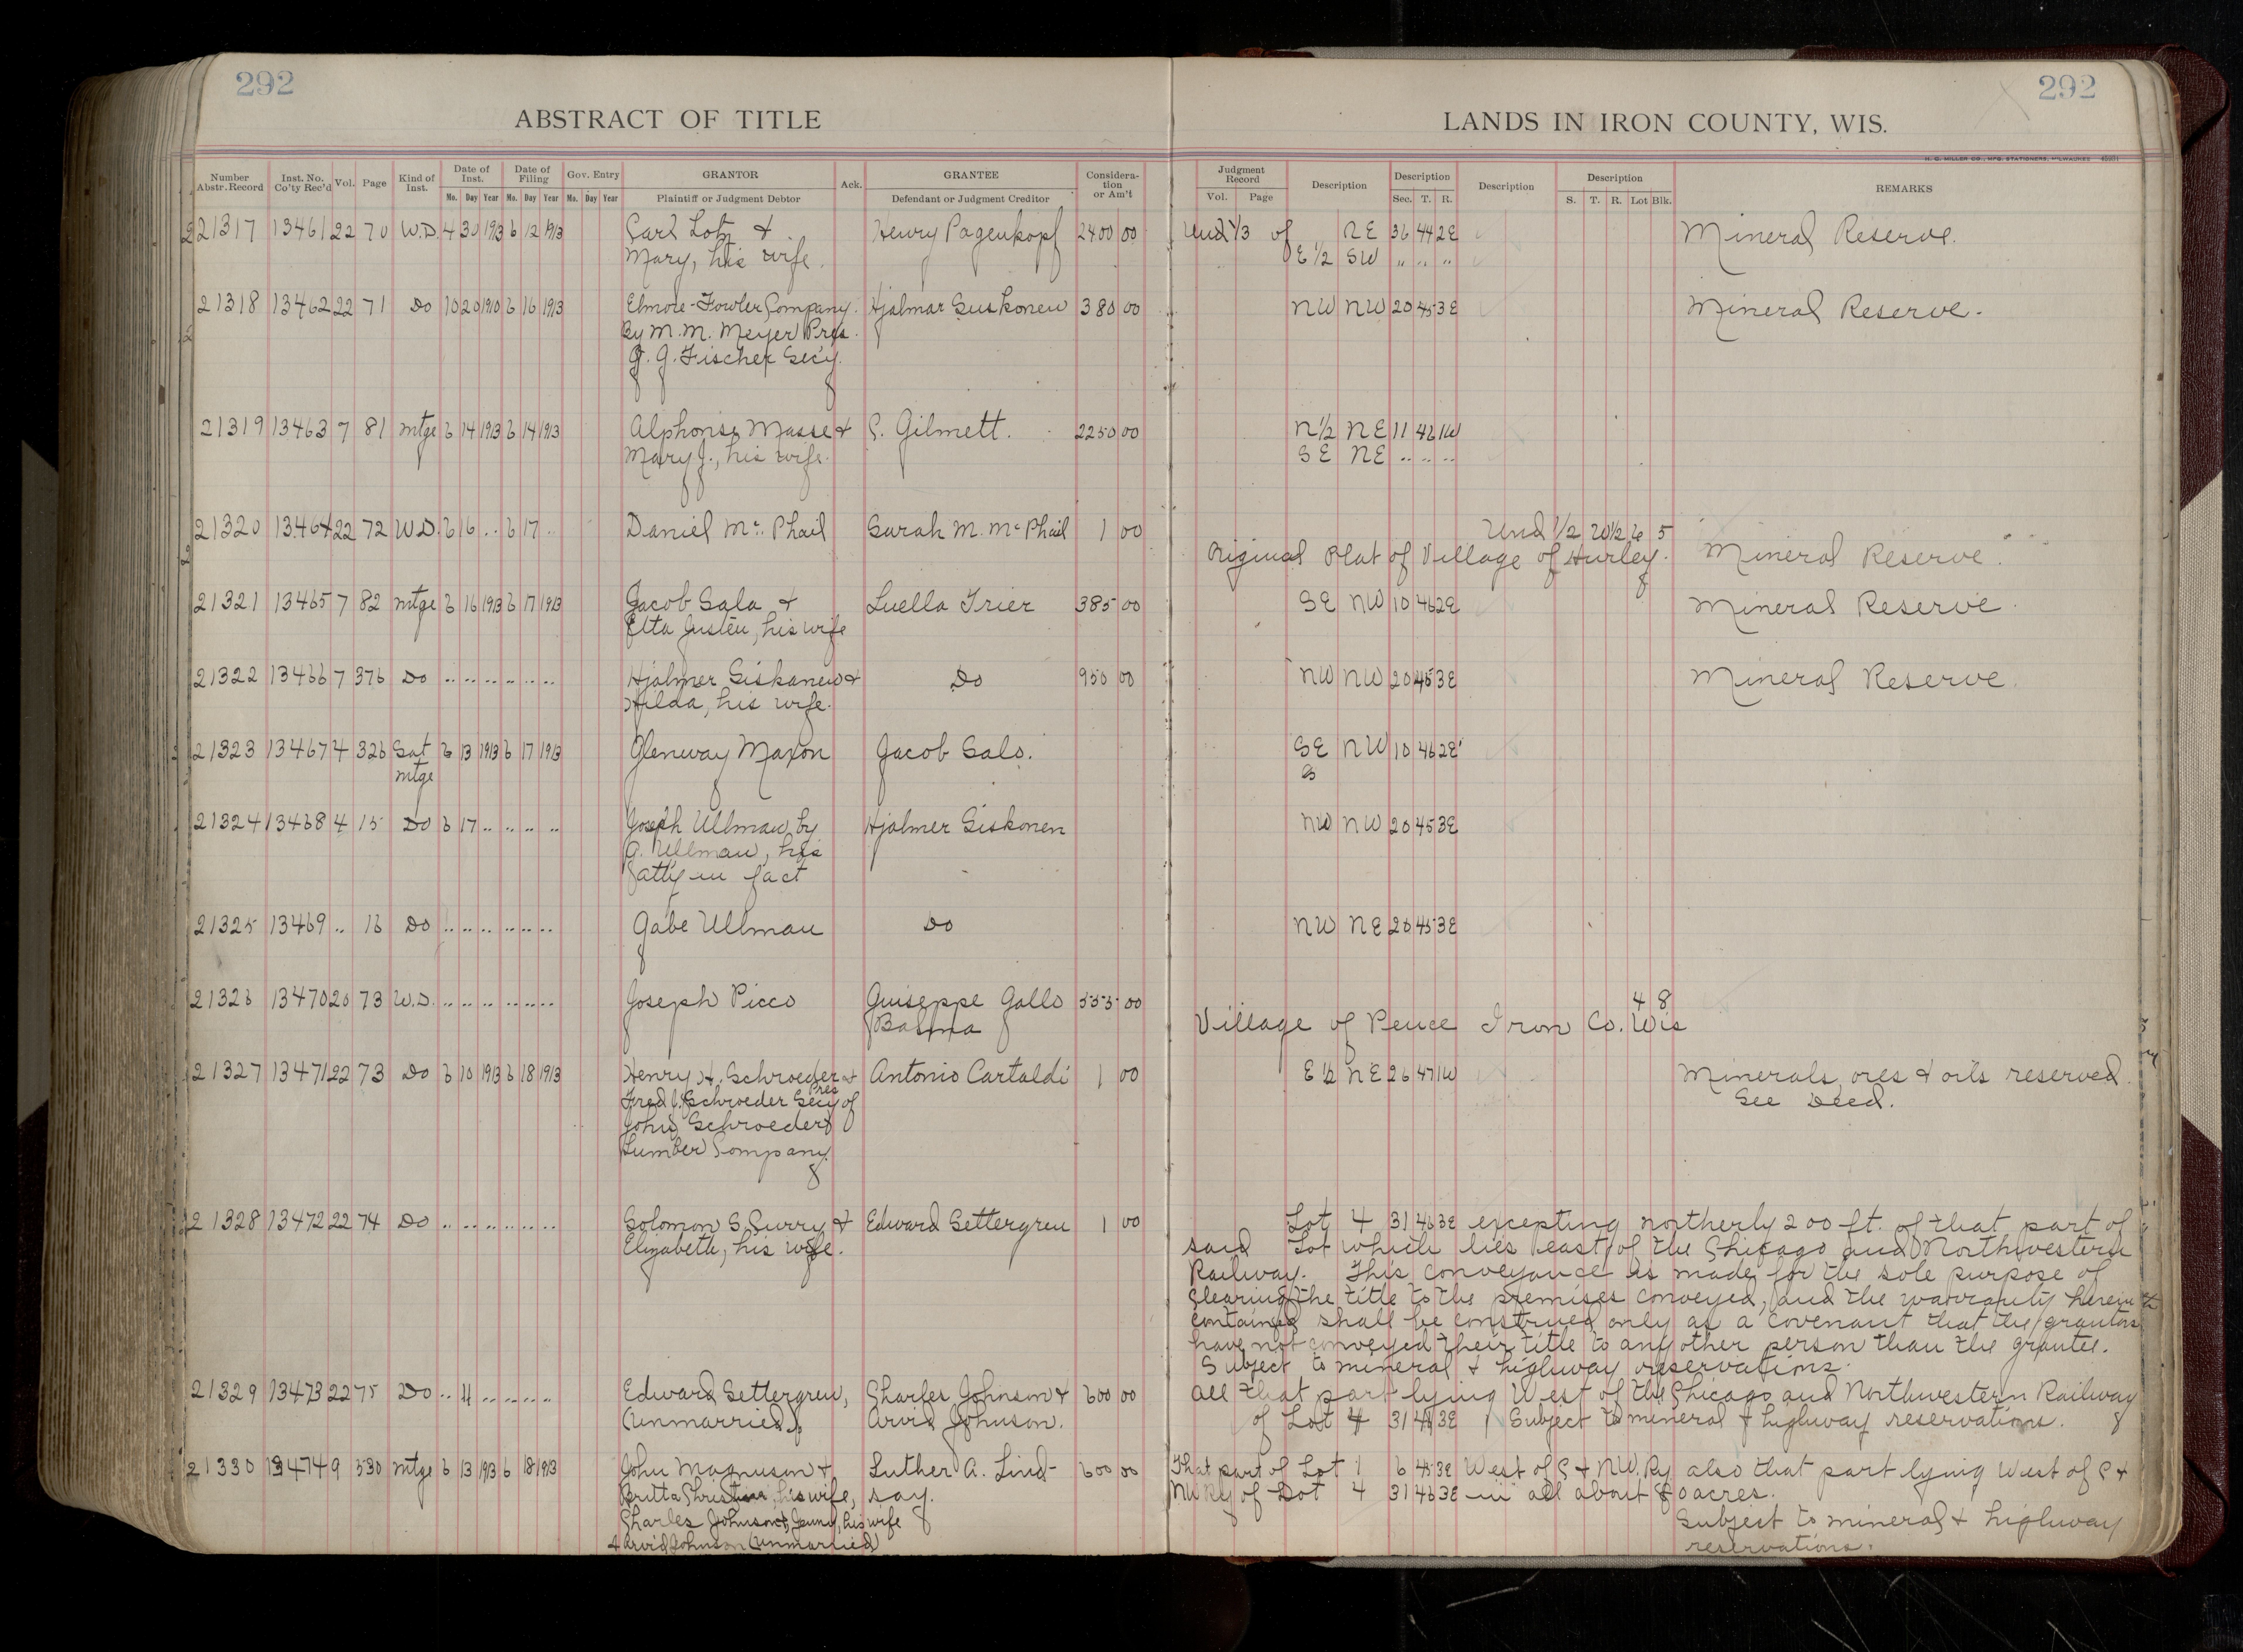 292
292
ABSTRACT OF TITLE
LANDS IN IRON COUNTY, WIS.
H. G. MILLER CO., MFG. STATIONERS, MILWAUKEE
Number Abstr. Record Inst. No. Co'ty Rec'd Vol. Page Kind of Inst. Date of Inst. Mo. Day Year Date of Filing Mo. Day Year Gov. Entry Mo. Day Year GRANTOR Plaintiff or Judgment Debtor Ack. GRANTEE Defendant or Judgment Creditor Consideration or Am't
Judgment Record Vol. Page Description Description Sec. T. R. Description Description S. T. R. Lot Blk. REMARKS
21317 13461 22 70 W.D. 4 30 1913 6 12 1913 Carl Lotz & Henry Pagenkopf 2400 00 Und 1/3 of NE 36 44 2E Mineral Reserve.
Mary, his wife. E 1/2 SW " " "
21318 13462 22 71 Do 10 20 1910 6 16 1913 Elmore-Fowler Company Hjalmar Suskonen 380 00 NW NW 20 45 3E Mineral Reserve.
By M. M. Meyer Pres.
J. J. Fischer Sec'y.
21319 13463 7 81 Mtge 6 14 1913 6 14 1913 Alphonse Masse & C. Gilmett. 2250 00 N 1/2 NE 11 46 1W
Mary J., his wife. SE NE " " "
21320 13464 22 72 W.D. 6 16 " 6 17 " Daniel Mc Phail Sarah M. McPhail 1 00 Und 1/2 W 1/2 6 5
Original Plat of Village of Hurley. Mineral Reserve.
21321 13465 7 82 Mtge 6 16 1913 6 17 1913 Jacob Salo & Luella Trier 385 00 SE NW 10 46 2E Mineral Reserve
Elta Justen, his wife
21322 13466 7 376 Do " " " " " " Hjalmer Siskanen & Do 950 00 NW NW 20 45 3E Mineral Reserve.
Hilda, his wife.
21323 13467 4 326 Sat 6 13 1913 6 17 1913 Glenway Maxon Jacob Salo. SE NW 10 46 2E
Mtge
21324 13468 4 15 Do 6 17 " " " " Joseph Ullman by Hjalmer Siskonen NW NW 20 45 3E
G. Ullman, his
atty in fact
21325 13469 " 16 Do " " " " " " Gabe Ullman Do NW NE 20 45 3E
21326 13470 20 73 W.D. " " " " " " Joseph Picco Guiseppe Gallo 555 00 4 8
Balma Village of Pence Iron Co. Wis
21327 13471 22 73 Do 6 10 1913 6 18 1913 Henry H. Schroeder & Antonio Cartaldi 1 00 E 1/2 NE 26 47 1W Minerals, ores & oils reserved.
Pres
Fred J. Schroeder Secy of See Deed.
John Schroeder
Lumber Company.
21328 13472 22 74 Do " " " " " " Solomon S. Curry & Edward Settergren 1 00 Lot 4 31 46 3E excepting northerly 200 ft. of that part of
Elizabeth, his wife. said Lot which lies east of the Chicago and Northwestern
Railway. This conveyance is made for the sole purpose of
clearing the title to the premises conveyed, and the warranty herein
contained shall be construed only as a covenant that the grantors
have not conveyed their title to any other person than the grantee.
Subject to mineral & highway reservations.
21329 13473 22 75 Do " 11 " " " " Edward Settergren, Charles Johnson & 600 00 All that part lying West of the Chicago and Northwestern Railway
(unmarried) Arvid Johnson. of Lot 4 31 46 3E Subject to mineral & highway reservations.
21330 13474 9 530 Mtge 6 13 1913 6 18 1913 John Magnuson & Luther A. Lind- 600 00 That part of Lot 1 6 45 3E West of C & N.W. Ry also that part lying West of C &
Britta Christina, his wife, say. NW Ry of Lot 4 31 46 3E in all about 80 acres.
Charles Johnson & Jenny, his wife Subject to mineral & highway
& Arvid Johnson (unmarried) reservations.